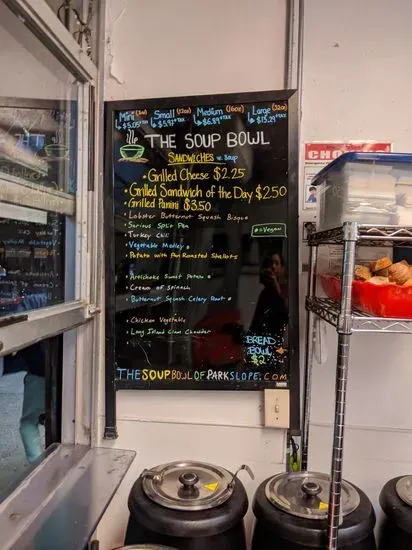 Mini (8oz) Small (12oz) Medium (16oz) Large (32oz)
$5.05+TAX $5.97+TAX $6.89+TAX $13.29+TAX
THE SOUP BOWL
SANDWICHES w. Soup
Grilled Cheese $2.25
Grilled Sandwich of the Day $2.50
Grilled Panini $3.50
Lobster Butternut Squash Bisque
Serious Split Pea
Turkey Chili
Vegetable Medley
Potato with Pan Roasted Shallots
= Vegan
Artichoke Sweet Potato
Cream of Spinach
Butternut Squash Celery Root
Chicken Vegetable
Long Island Clam Chowder
BREAD
BOWL
$2
THESOUPBOWLOFPARKSLOPE.COM